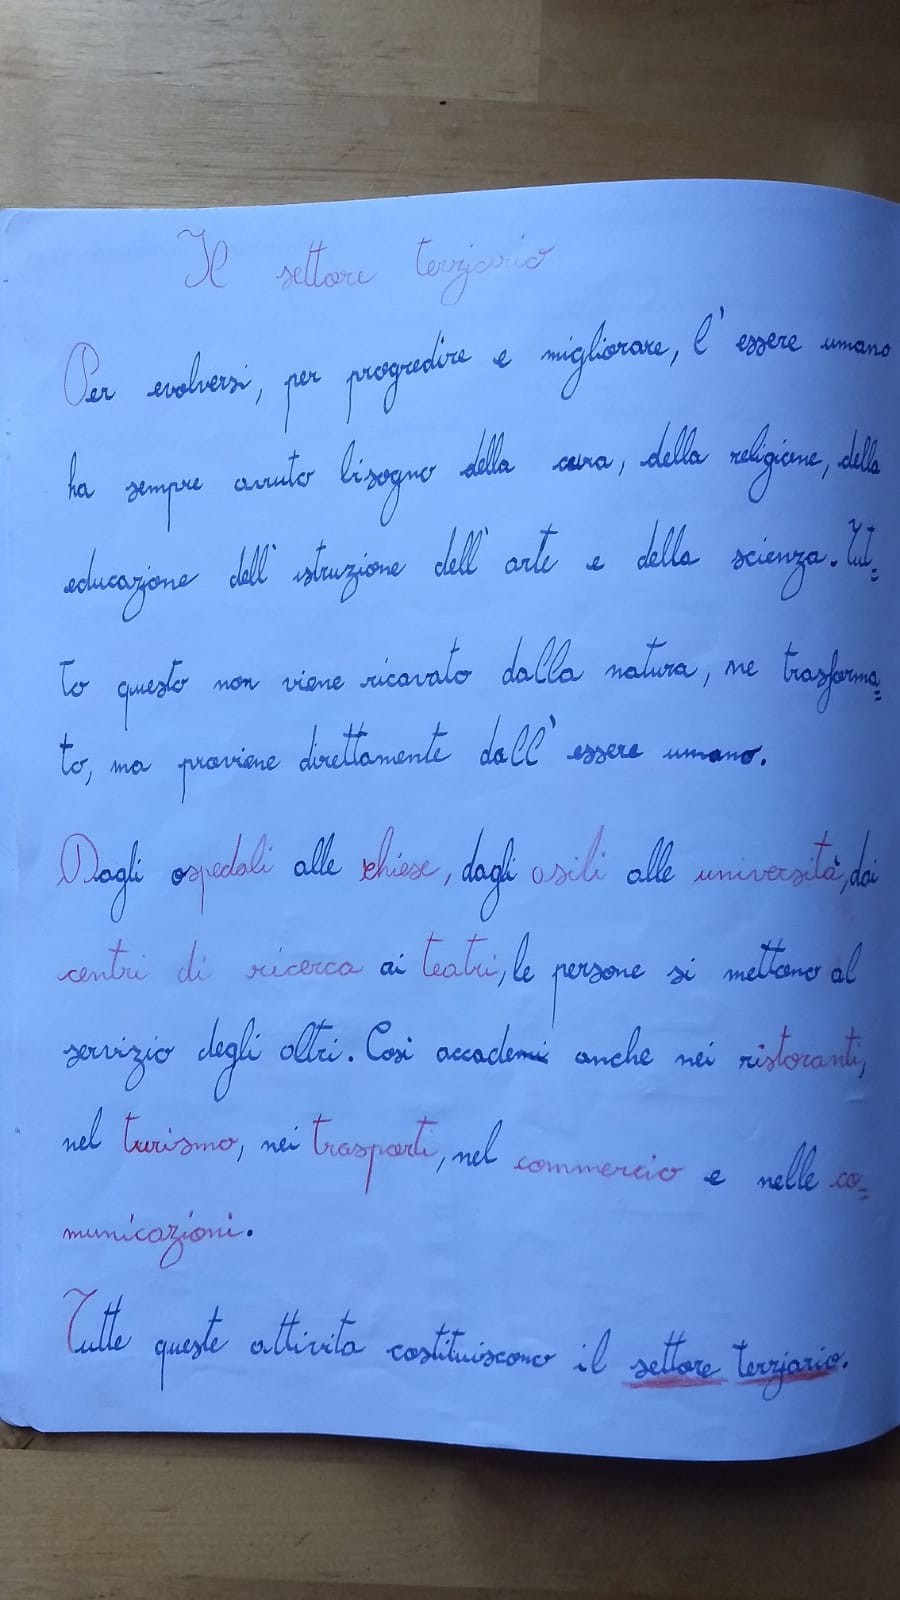 Il settore terziario
Per evolversi, per progredire e migliorare, l'essere umano
ha sempre avuto bisogno della cura, della religione, della
educazione dell'istruzione dell'arte e della scienza. Tut=
to questo non viene ricavato dalla natura, ne trasforma=
to, ma proviene direttamente dall'essere umano.
Dagli ospedali alle chiese, dagli asili alle università, dai
centri di ricerca ai teatri, le persone si mettono al
servizio degli altri. Così accade anche nei ristoranti,
nel turismo, nei trasporti, nel commercio e nelle co=
municazioni.
Tutte queste attivita costituiscono il settore terziario.